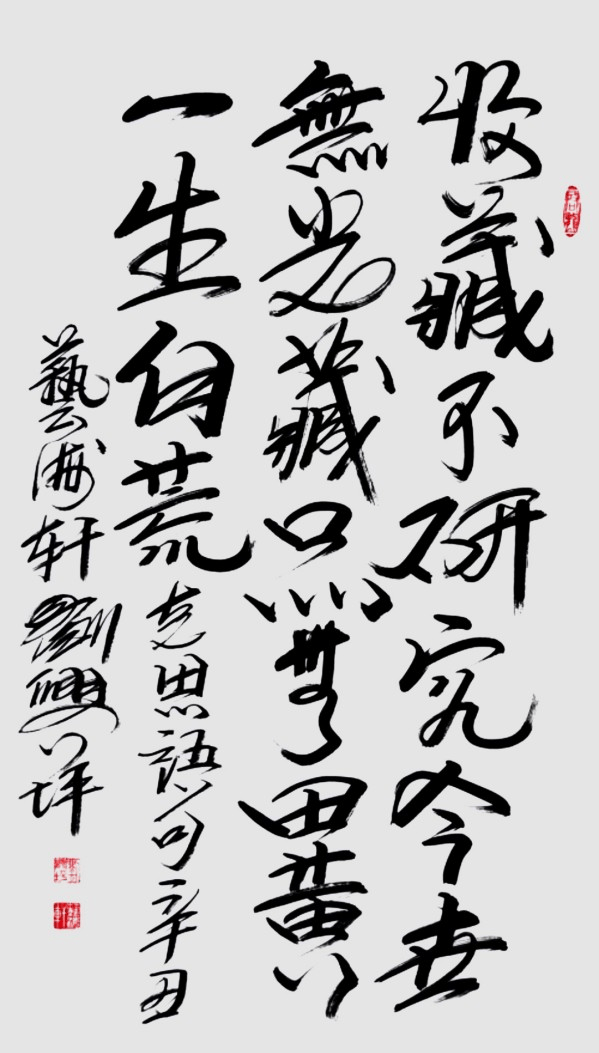 收藏不研究今世
無光藏品無田黄
一生白荒克思語句辛丑
藝海轩劉興祥